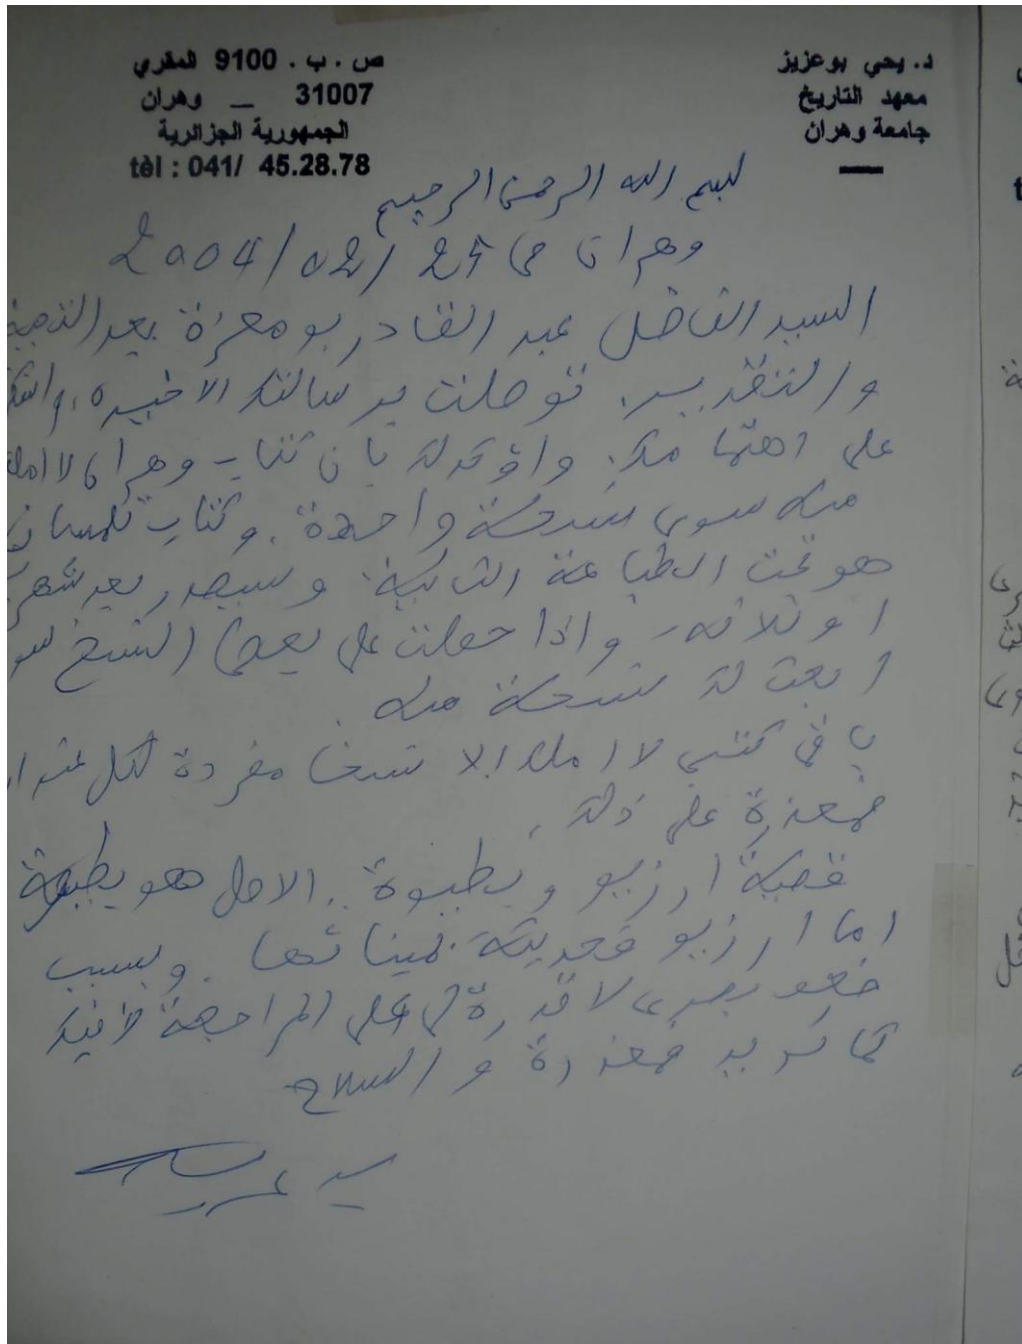 د. يحي بوعزيز
معهد التاريخ
جامعة وهران
ص . ب . 9100 المقري
31007 _ وهران
الجمهورية الجزائرية
tèl : 041/ 45.28.78
بسم الله الرحمن الرحيم
وهران في 25/02/2004
السيد الفاضل عبد القادر بومعزة بعد التحية
والتقدير. توصلت برسالتك الأخيرة، واشكر
على اهتمامك. واؤكد لك بان كتاب وهران لا املك
منه سوى نسخة واحدة. وكتاب تلمسان
هو تحت الطباعة الثانية. وسيصدر بعد شهر
او ثلاثة، واذا حصلت على بعض النسخ سو
ابعث لك نسخة منه.
باقي كتبي لا املك الا نسخا مفردة لكل
فمعذرة على ذلك.
قضية ارزيو وبطيوة. الاصل هو بطيوة
اما ارزيو فحديثة بمينائها. وبسبب
ضعف بصري لا قدرة لي على المراجعة لافيدك
كما تريد فمعذرة والسلام